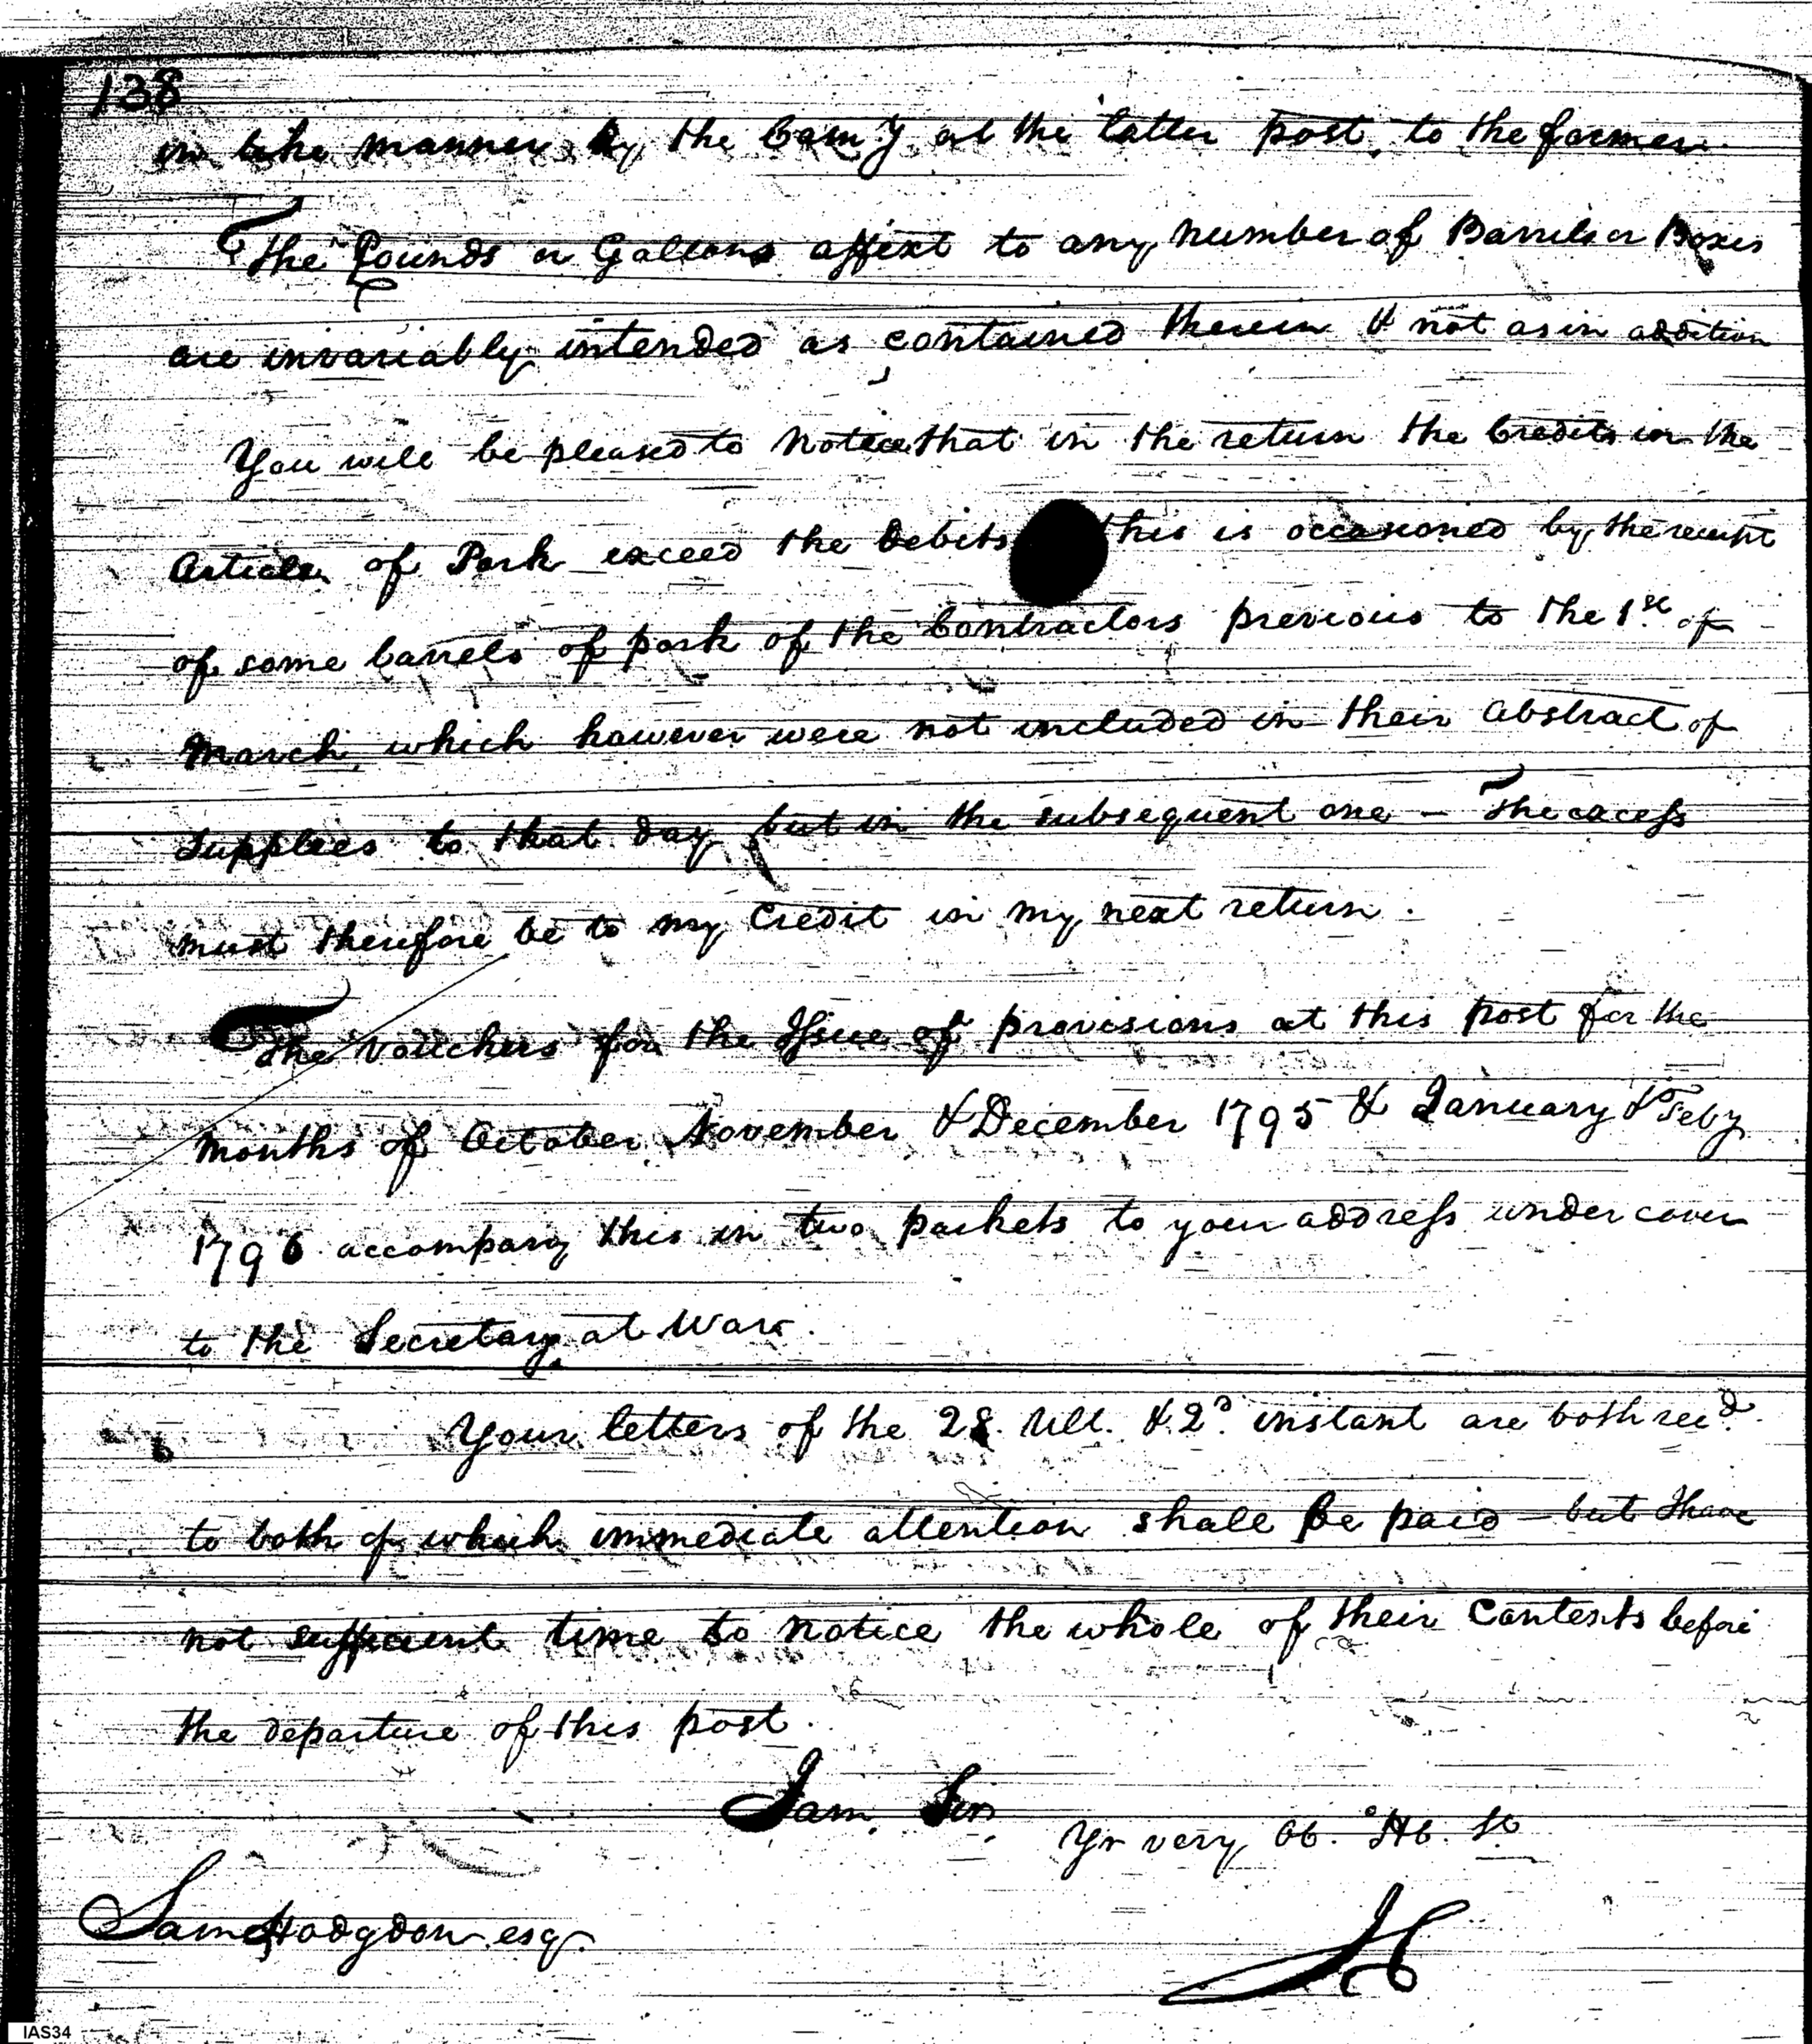 138
in like manner by the Com'y at the latter post, to the former.
The Pounds or Gallons affixt to any number of Barrils or Boxes
are invariably intended as contained therein & not as in addition
You will be pleased to notice that in the return the Credits in the
Article of Pork exceed the Debits this is occasioned by the receipt
of some barrels of pork of the Contractors previous to the 1st of
March, which however were not included in their abstract of
Supplies to that day but in the subsequent one - The excess
must therefore be to my Credit in my next return.
The Vouchers for the Issue of provisions at this post for the
months of October November & December 1795 & January & Feby
1796 accompany this in two packets to your address under cover
to the Secretary at War.
Your letters of the 28. Ult. & 2d. instant are both recd.
to both of which immediate attention shall be paid - but I have
not sufficient time to notice the whole of their Contents before
the departure of this post.
I am Sir
Yr very Ob. Hb. St
Saml Hodgdon esqr.
IAS34